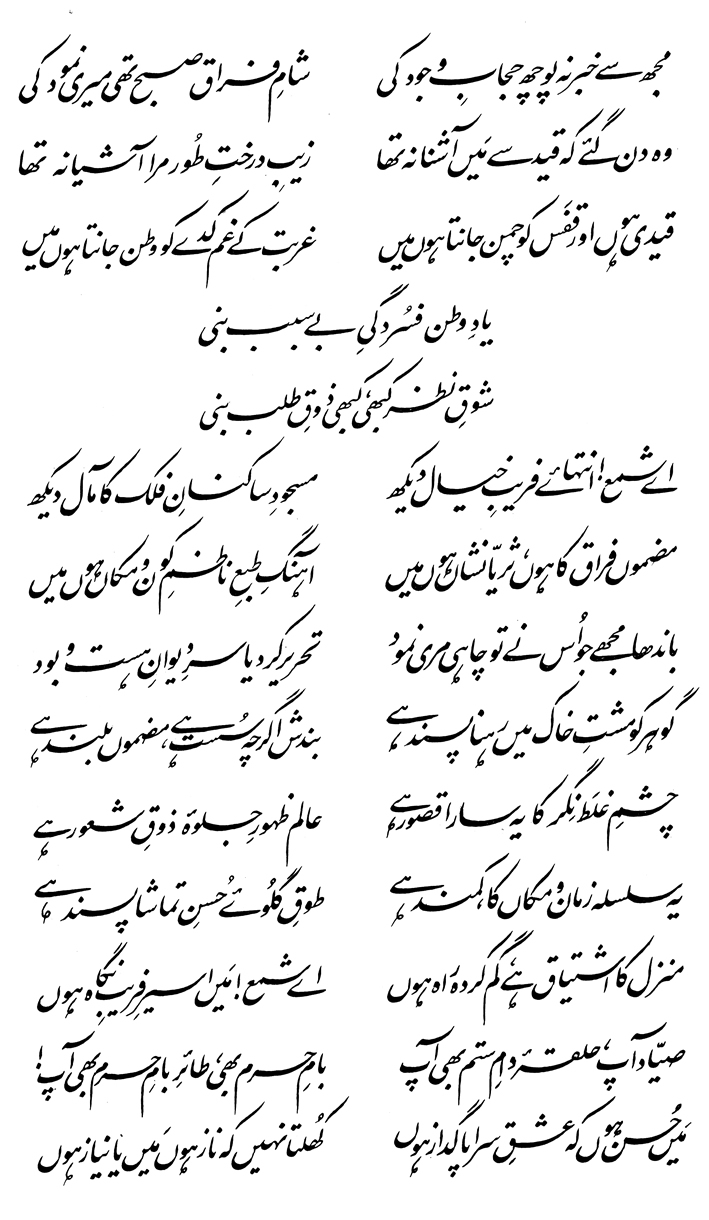 مجھ سے خبر نہ پوچھ حجابِ وجود کی شامِ فراق صبح تھی میری نمود کی
وہ دن گئے کہ قید سے مَیں آشنا نہ تھا زیبِ درختِ طُور مرا آشیانہ تھا
قیدی ہوں اور قفَس کو چمن جانتا ہوں میں غربت کے غم کدے کو وطن جانتا ہوں میں
یادِ وطن فسُردگیِ بے سبب بنی
شوقِ نظر کبھی، کبھی ذوقِ طلب بنی
اے شمع! انتہائے فریبِ خیال دیکھ مسجودِ ساکنانِ فلک کا مآل دیکھ
مضموں فراق کا ہوں، ثریّا نشاں ہوں میں آہنگِ طبعِ ناظمِ کون و مکاں ہوں میں
باندھا مجھے جو اُس نے تو چاہی مری نمود تحریر کر دیا سرِ دیوانِ ہست و بود
گوہر کو مشتِ خاک میں رہنا پسند ہے بندش اگرچہ سُست ہے، مضموں بلند ہے
چشمِ غلَط نِگر کا یہ سارا قصور ہے عالم ظہورِ جلوۂ ذوقِ شعور ہے
یہ سلسلہ زمان و مکاں کا، کمند ہے طوقِ گلُوئے حُسنِ تماشا پسند ہے
منزل کا اشتیاق ہے، گم کردہ راہ ہوں اے شمع! مَیں اسیرِ فریبِ نگاہ ہوں
صیّاد آپ، حلقۂ دامِ ستم بھی آپ بامِ حرم بھی، طائرِ بامِ حرم بھی آپ!
مَیں حُسن ہوں کہ عشقِ سراپا گداز ہوں کھُلتا نہیں کہ ناز ہوں مَیں یا نیاز ہوں